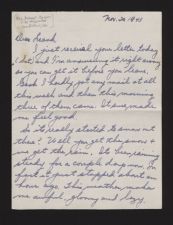 Nov. 30 1943
Dear Leand,
I just received your letter today
and I'm answering it right away
so you can get it before you leave.
Gosh I hadn't got any mail at all
this week and then this morning
three of them came. It sure made
me feel good.
So it really started to snow out
there? Well you get the snow &
we get the rain. It has been raining
steady for a couple days now. In
fact it just stopped about an
hour ago. This weather makes
me awful gloomy and lazy.